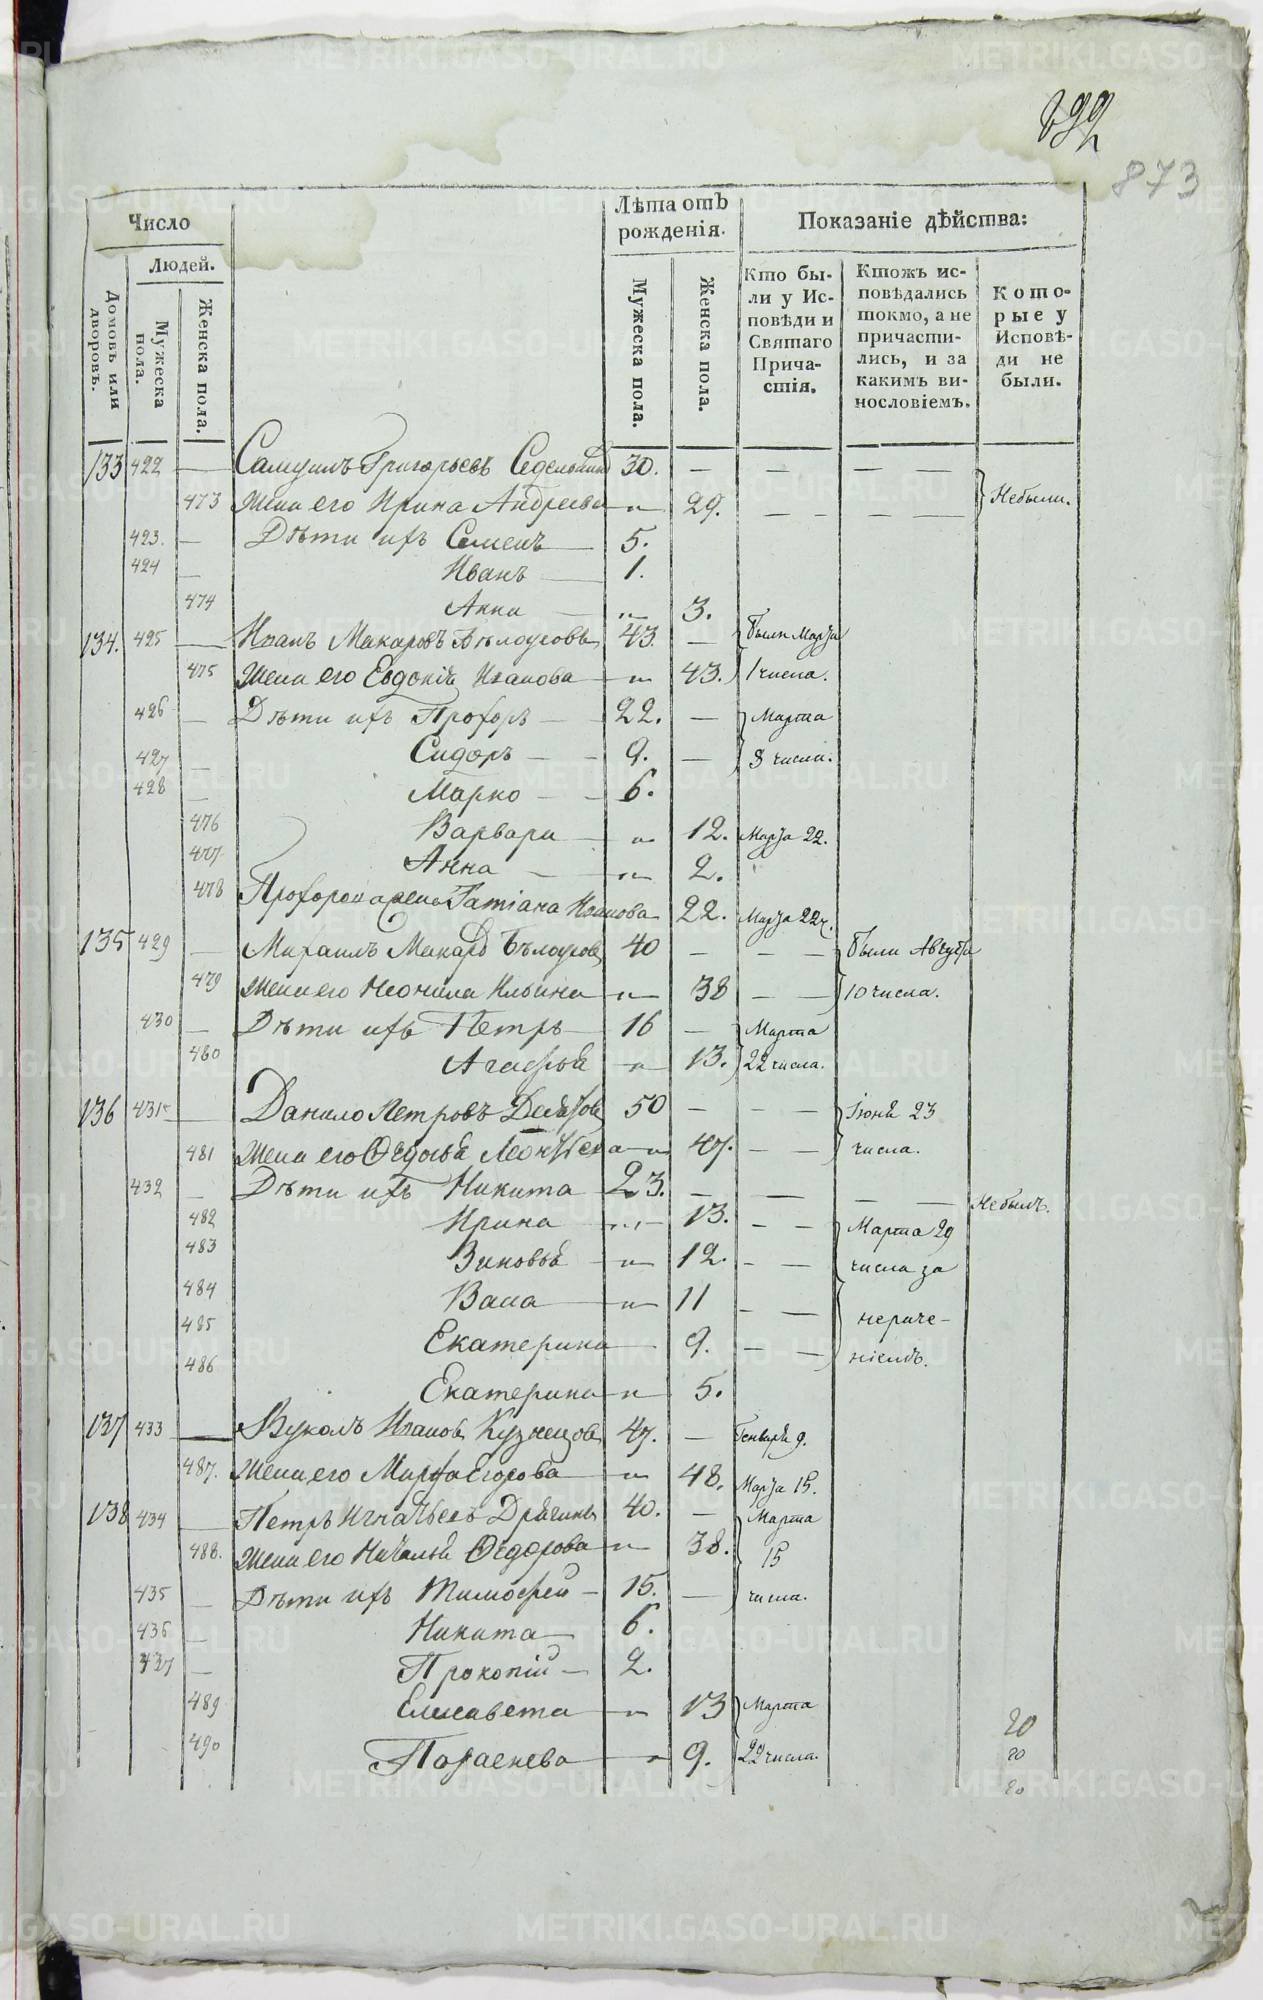 873
Число
Людей.
Домовъ или дворовъ.
Мужеска пола.
Женска пола.
Лѣта отъ рожденія.
Мужеска пола.
Женска пола.
Показаніе дѣйства:
Кто были у Исповѣди и Святаго Причастія.
Ктожъ исповѣдались токмо, а не причастились, и за какимъ винословіемъ.
Которые у Исповѣди не были.
133 422 — Самуилъ Григорьевъ 30. — — — —
473 Жена его Ирина Андреева — 29. — — — — Небыли.
423. — Дѣти ихъ Семенъ — 5.
424 — Иванъ — 1.
474 Анна — 3.
134. 425 — Иванъ Макаровъ Бѣлоусовъ 43. — были Марта
475 Жена его Евдокія Иванова — 43. 1 числа.
426 — Дѣти ихъ Прохоръ — 22. — Марта
427 — Сидоръ — 9. — 8 числа.
428 — Марко — 6.
476 Варвара — 12. Марта 22.
477 Анна — 2.
478 Прохорова жена Татіана Иванова 22. Марта 22 ч.
135 429 — Михаилъ Макаровъ Бѣлоусовъ 40 — — — были Августа
479 Жена его Неонила Ильина — 38 — — 10 числа.
430 — Дѣти ихъ Петръ — 16 — Марта
480 Агафья — 13. 22 числа.
136 431 — Данило Петровъ 50 — — — Іюня 23
481 Жена его Ѳедосья Леонтьева — 47. — — числа.
432 — Дѣти ихъ Никита 23. — — — — Небылъ.
482 Ирина — 13. — — Марта 29
483 Зиновья — 12. — — числа за
484 Васа — 11 — —
485 Екатерина — 9. — — ніемъ.
486 Екатерина — 5.
137 433 — Вуколъ Ивановъ Кузнецовъ 47. — Генваря 9.
487. Жена его Марфа Егорова — 48. Марта 15.
138 434 — Петръ Игнатьевъ 40. — Марта
488. Жена его Наталья Ѳедорова — 38. 15
435 — Дѣти ихъ Тимофей — 15. — числа.
436 — Никита — 6.
437 — Прокопій — 2.
489 Елисавета — 13 Марта
490 — 9. 22 числа.
20
20
20
METRIKI.GASO-URAL.RU